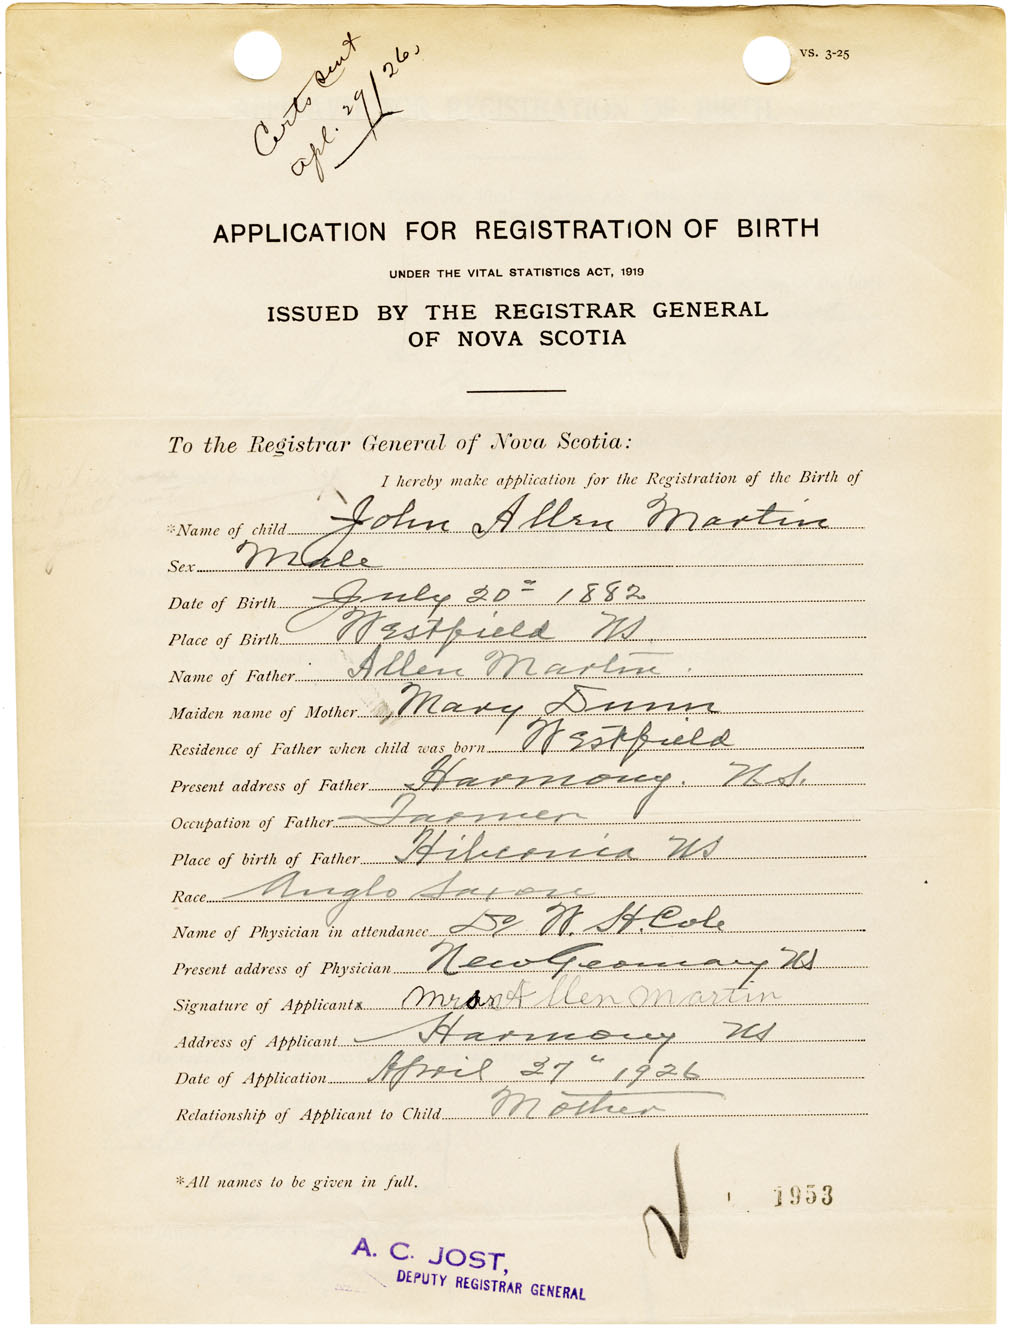 Certs sent
apl. 29/26.
VS. 3-25
APPLICATION FOR REGISTRATION OF BIRTH
UNDER THE VITAL STATISTICS ACT, 1919
ISSUED BY THE REGISTRAR GENERAL
OF NOVA SCOTIA
To the Registrar General of Nova Scotia:
I hereby make application for the Registration of the Birth of
*Name of child John Allen Martin
Sex Male
Date of Birth July 20" 1882
Place of Birth Westfield NS.
Name of Father Allen Martin.
Maiden name of Mother Mary Dunn
Residence of Father when child was born Westfield
Present address of Father Harmony. N.S.
Occupation of Father Farmer
Place of birth of Father Hibernia NS
Race Anglo Saxon
Name of Physician in attendance Dr W. H. Cole
Present address of Physician New Germany NS
Signature of Applicant x Mrs Allen Martin
Address of Applicant Harmony NS
Date of Application April 27" 1926
Relationship of Applicant to Child Mother
*All names to be given in full.
1953
A. C. JOST,
DEPUTY REGISTRAR GENERAL